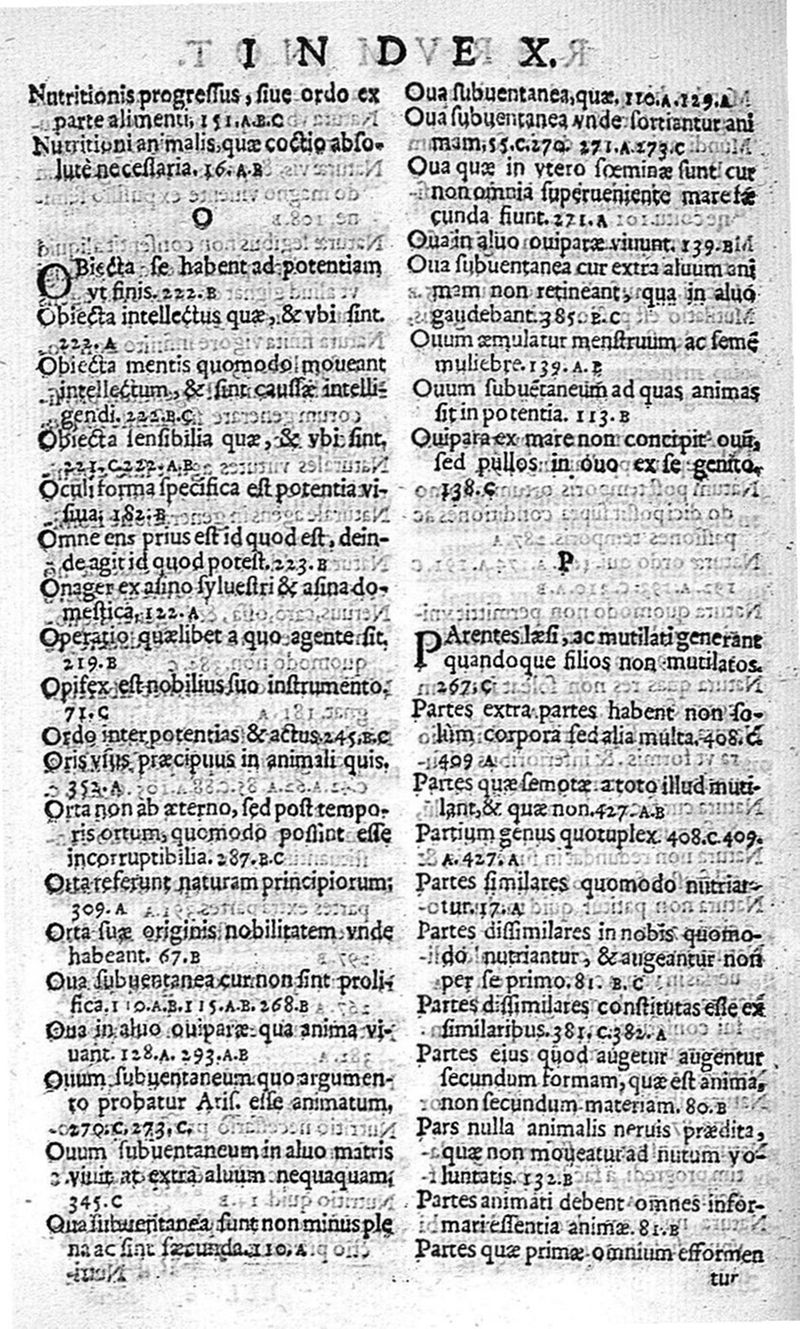 INDEX.
Nutritionis progressus, siue ordo ex
parte alimenti, 151.A.B.C
Nutritioni animalis, quæ coctio abso-
lutè necessaria. 16.A.B
O
OBiecta se habent ad potentiam
vt finis. 222.B
Obiecta intellectus quæ, & vbi sint.
222.A
Obiecta mentis quomodo moueant
intellectum, & sint caussæ intelli-
gendi. 222.B.C
Obiecta sensibilia quæ, & vbi sint,
221.C.222.A.B
Oculi forma specifica est potentia vi-
siua, 182.B
Omne ens prius est id quod est, dein-
de agit id quod potest. 223.B
Onager ex asino syluestri & asina do-
mestica, 122.A
Operatio quælibet a quo agente sit,
219.B
Opifex est nobilius suo instrumento,
71.C
Ordo inter potentias & actus. 245.B.C
Oris vsus præcipuus in animali quis.
352.A
Orta non ab æterno, sed post tempo-
ris ortum, quomodo possint esse
incorruptibilia. 287.B.C
Orta referunt naturam principiorum;
309.A
Orta suæ originis nobilitatem vnde
habeant. 67.B
Oua subuentanea cur non sint proli-
fica. 110.A.B. 115.A.B. 268.B
Oua in aluo ouiparæ qua anima vi-
uant. 128.A. 293.A.B
Ouum subuentaneum quo argumen-
to probatur Aris. esse animatum,
270.C. 273.C.
Ouum subuentaneum in aluo matris
viuit at extra aluum nequaquam;
345.C
Oua subuentanea sunt non minus ple
na ac sint fæcunda. 110.A
Oua subuentanea, quæ. 110.A.129.A
Oua subuentanea vnde sortiantur ani
mam, 55.C.270. 271.A.273.C
Oua quæ in vtero fœminæ sunt cur
non omnia superueniente mare fæ
cunda fiunt. 271.A
Oua in aluo ouiparæ viuunt. 139.B
Oua subuentanea cur extra aluum ani
mam non retineant, qua in aluo
gaudebant. 385.B.C
Ouum æmulatur menstruum ac semẽ
muliebre. 139.A.B
Ouum subuẽtaneum ad quas animas
sit in potentia. 113.B
Ouipara ex mare non concipit ouũ,
sed pullos in ouo ex se genito.
138.C
P
PArentes læsi, ac mutilati generant
quandoque filios non mutilatos.
267.C
Partes extra partes habent non so-
lùm corpora sed alia multa. 408.C
409.A
Partes quæ semotæ a toto illud muti-
lant, & quæ non. 427.A.B
Partium genus quotuplex. 408.C.409.
A. 427.A
Partes similares quomodo nutrian-
tur. 17.A
Partes dissimilares in nobis quomo-
do nutriantur, & augeantur non
per se primo. 81. B.C
Partes dissimilares constitutas esse ex
similaribus. 381.C.382.A
Partes eius quod augetur augentur
secundum formam, quæ est anima,
non secundum materiam. 80.B
Pars nulla animalis neruis prædita,
quæ non moueatur ad nutum vo-
luntatis. 132.B
Partes animati debent omnes infor-
mari essentia animæ. 81.B
Partes quæ primæ omnium efformen
tur